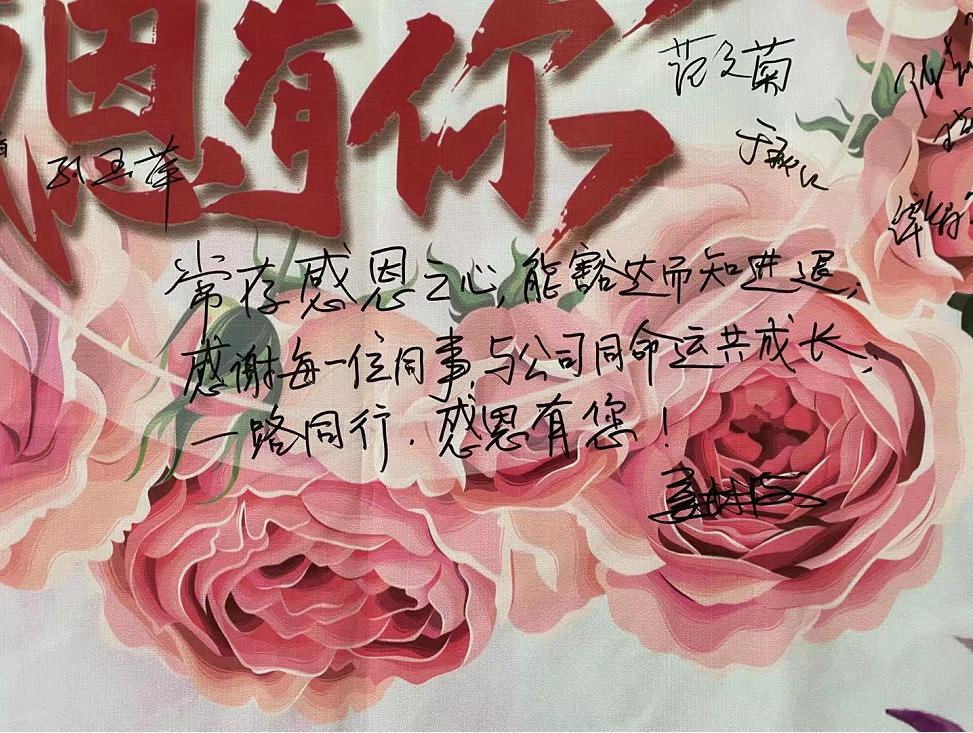 恩有你
范文菊
孔玉萍
常存感恩之心,能豁达而知进退;
感谢每一位同事,与公司同命运共成长,
一路同行.感恩有您!